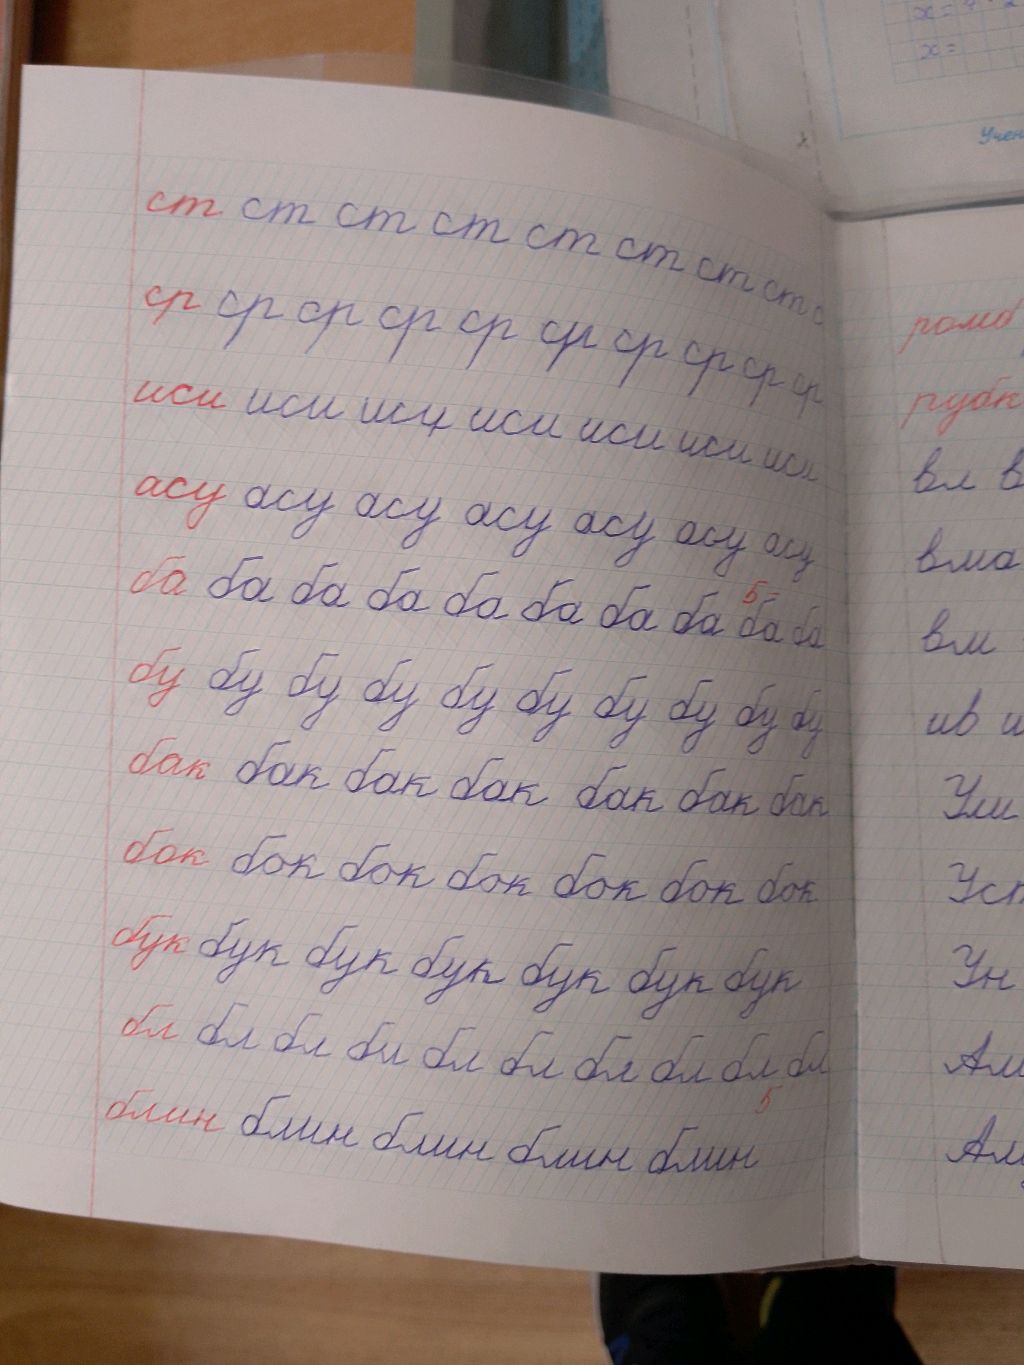 ст ст ст ст ст ст ст ст
ср ср ср ср ср ср ср ср ср ср
иси иси иси иси иси иси иси
асу асу асу асу асу асу асу
5-
ба ба ба ба ба ба ба ба ба ба
бу бу бу бу бу бу бу бу бу бу
бак бак бак бак бак бак бак
бок бок бок бок бок бок бок
бук бук бук бук бук бук бук
бл бл бл бл бл бл бл бл бл бл
5
блин блин блин блин блин
x=
ромб
вл
вма
вм
ив
Ун